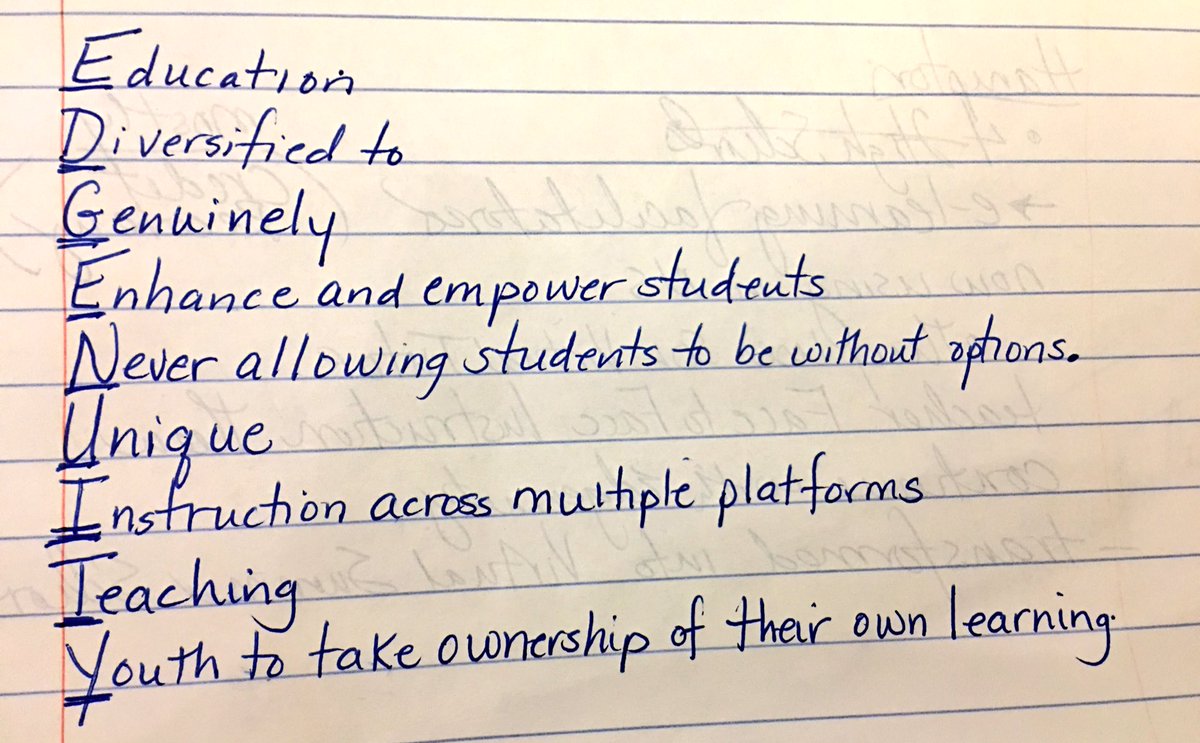 Education
Diversified to
Genuinely
Enhance and empower students
Never allowing students to be without options.
Unique
Instruction across multiple platforms
Teaching
Youth to take ownership of their own learning.